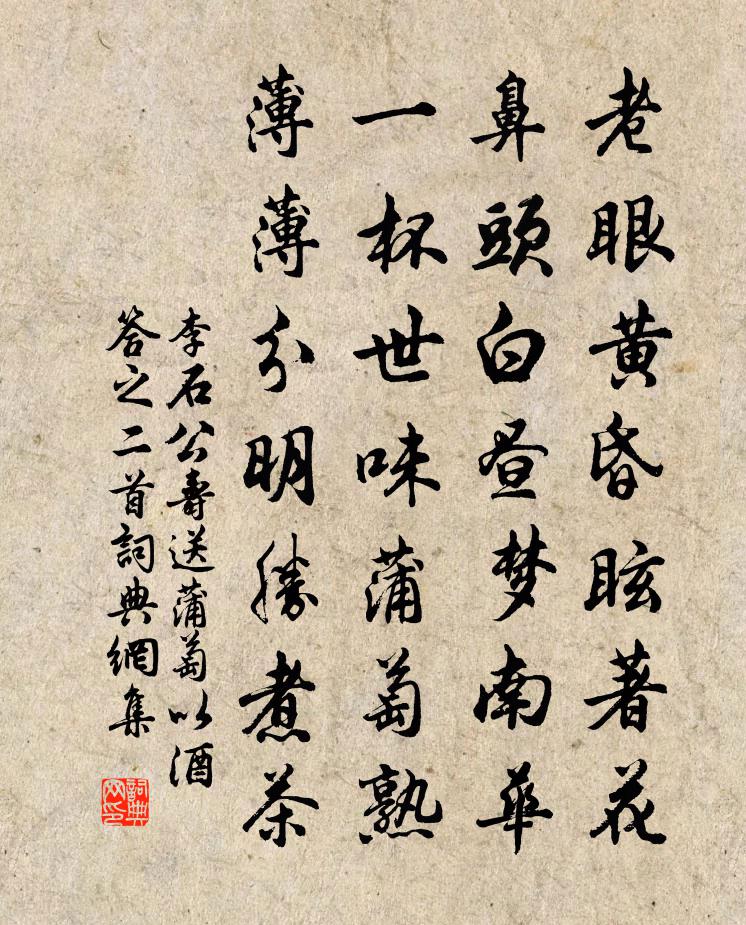 老眼黄昏眩著花
鼻頭白昼梦南華
一杯世味蒲萄熟
薄薄分明勝煮茶
李石公壽送蒲萄以酒
答之二首詞典網集
詞典网印